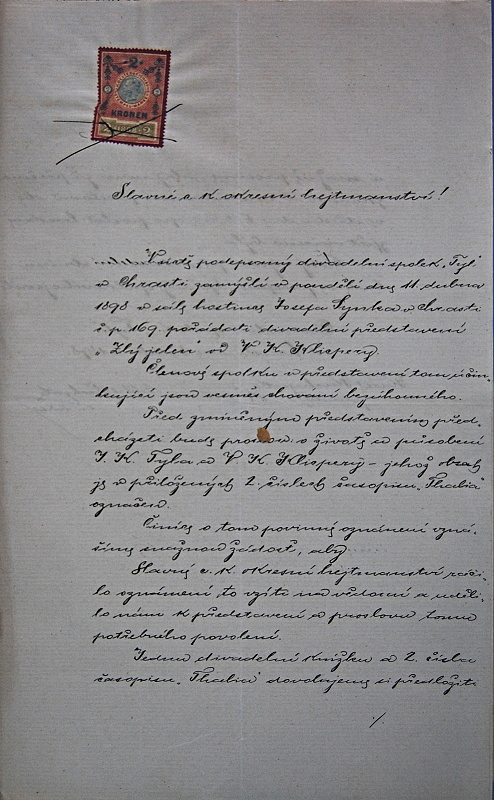 2
KRONEN
Slavné c. k. okresní hejtmanství!
V úctě podepsaný divadelní spolek „Tyl“
v Chrasti zamýšlí v pondělí dne 11. dubna
1898 v sále hostince Josefa Synka v Chrasti
č. p. 169. pořádati divadelní představení
„Zlý jelen“ od V. K. Klicpery.
Členové spolku v představení tom účin-
kující jsou vesměs chování bezúhonného.
Před zmíněným představením před-
cházeti bude proslov o životě a působení
J. K. Tyla a V. K. Klicpery – jehož obsah
je v přiložených 2. číslech časopisu „Thalia“
označen.
Činíce o tom povinné oznámení vzná-
šíme snažnou žádost, aby
Slavné c. k. okresní hejtmanství ráči-
lo oznámení to vzíti na vědomí a uděli-
lo nám k představení a proslovu tomu
potřebného povolení.
Jednu divadelní knížku a 2. čísla
časopisu „Thalia“ dovolujeme si předložiti
./.